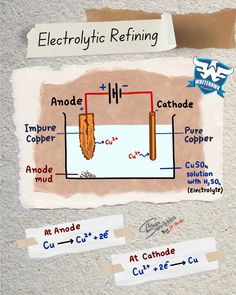 Electrolytic Refining
WHITEHAWK
Anode
+
-
Cathode
Impure
Copper
Pure
Copper
Cu²⁺
Cu²⁺
Anode
mud
CuSO₄
solution
with H₂SO₄
(Electrolyte)
At Anode
Cu → Cu²⁺ + 2ē
At Cathode
Cu²⁺ + 2ē → Cu